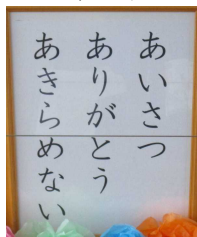 あいさつ
ありがとう
あきらめない